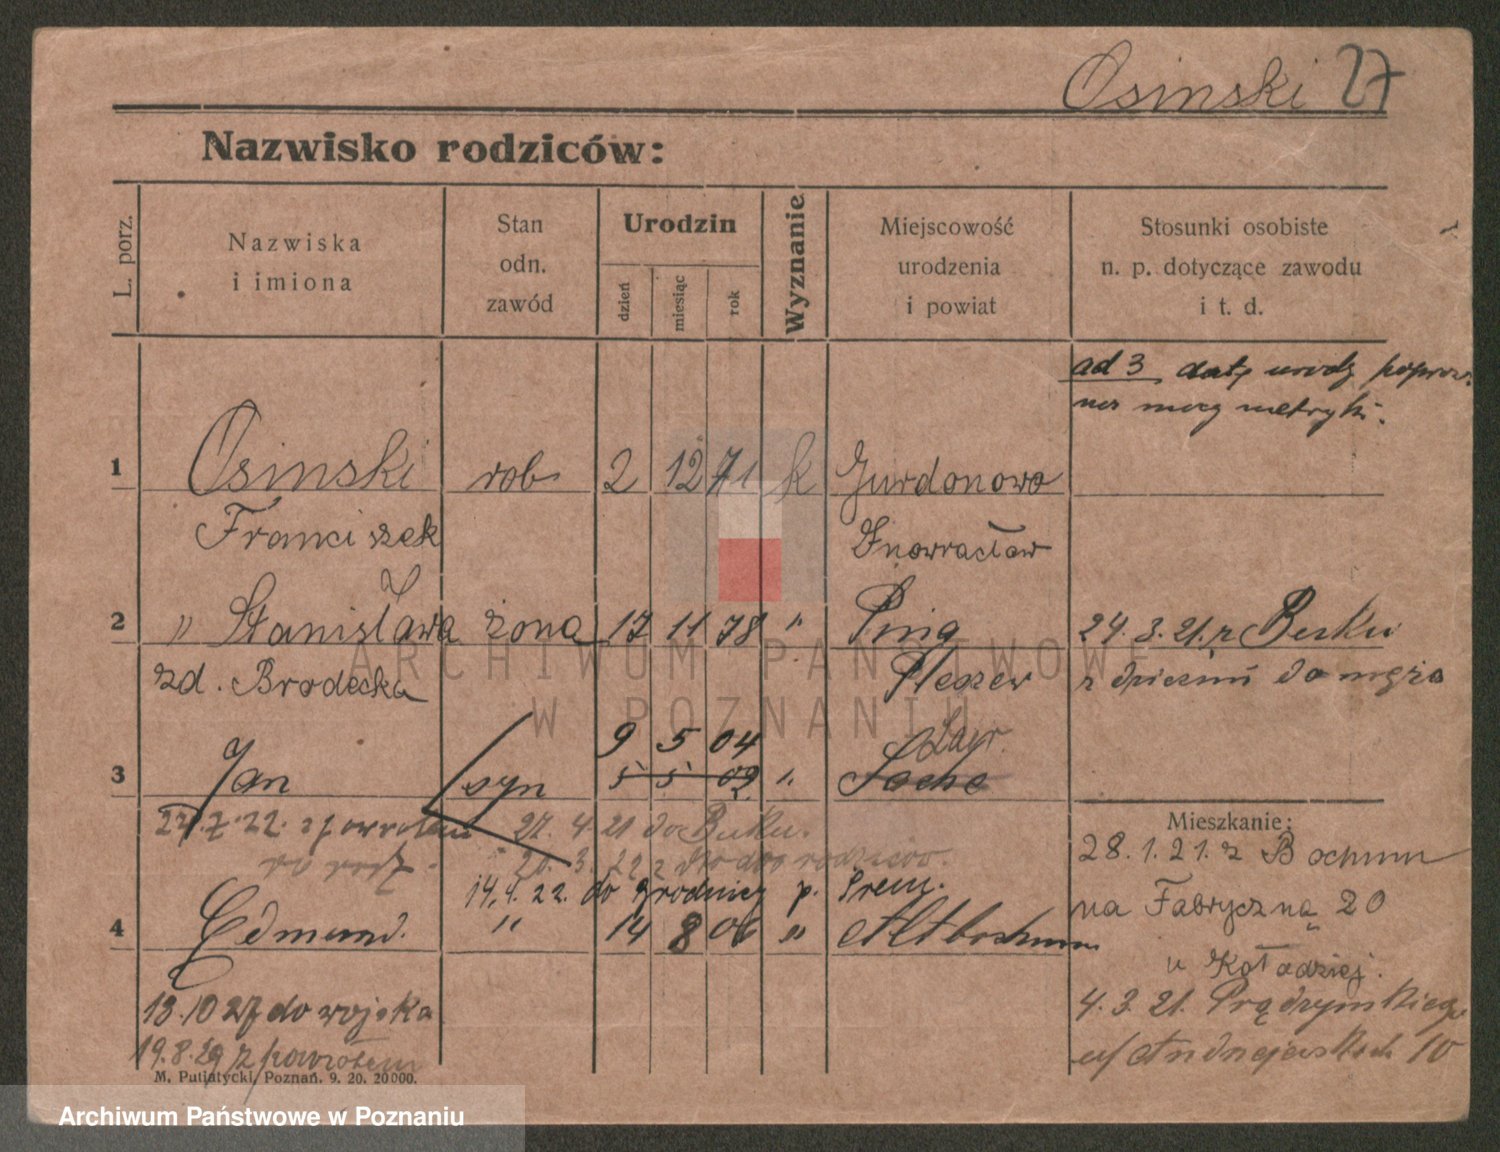 Osinski 27
Nazwisko rodziców:
L. porz.
Nazwiska
i imiona
Stan
odn.
zawód
Urodzin
dzień
miesiąc
rok
Wyznanie
Miejscowość
urodzenia
i powiat
Stosunki osobiste
n. p. dotyczące zawodu
i t. d.
ad 3 datę urodz
mocy metryki.
1 Osinski rob 2 12 71 k
Franciszek Inowracław
2 " Stanisława żona 17 11 78 "
zd. Brodecka Pleszew
24. 3. 21. z Buku
z do męża
9 5 04
3 Jan syn 5 5 09 "
22. 7. 22. z powrotem 27. 4. 21 do Buku.
do rodz. 20. 3. 22 z do rodziców.
14. 4. 22. do p. Srem.
4 Edmund. " 14 8 06 " Altbochum
13. 10 27 do wojska
19. 8. 29 z powrotem
Mieszkanie:
28. 1. 21. z Bochum
na Fabryczną 20
u Kołodziej.
4. 3. 21. Prądzyńskiego
10
M. Putiatycki, Poznań. 9. 20. 20000.
ARCHIWUM PAŃSTWOWE
W POZNANIU
Archiwum Państwowe w Poznaniu